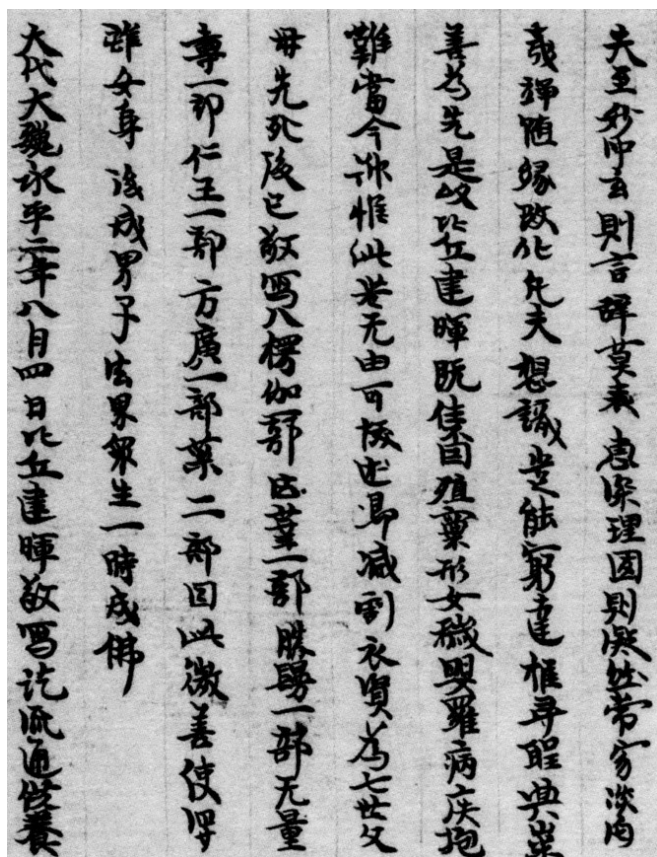 夫至妙冲玄則言辞莫表惠深理固則凝然常寂淡
随縁改化凡夫想識豈能窮達推尋聖典崇
善为先是以比丘建暉既住因殖稟形女穢嬰罹病疾抱
難當今仰惟此苦无由可拔即減割衣資為七世父
母先死後亡敬寫入楞伽一部法華一部勝鬘一部无量
壽一部仁王一部方廣一部藥二部因此微善使得
離女身後成男子法界衆生一時成佛
大代大魏永平二年八月四日比丘建暉敬寫訖流通供養